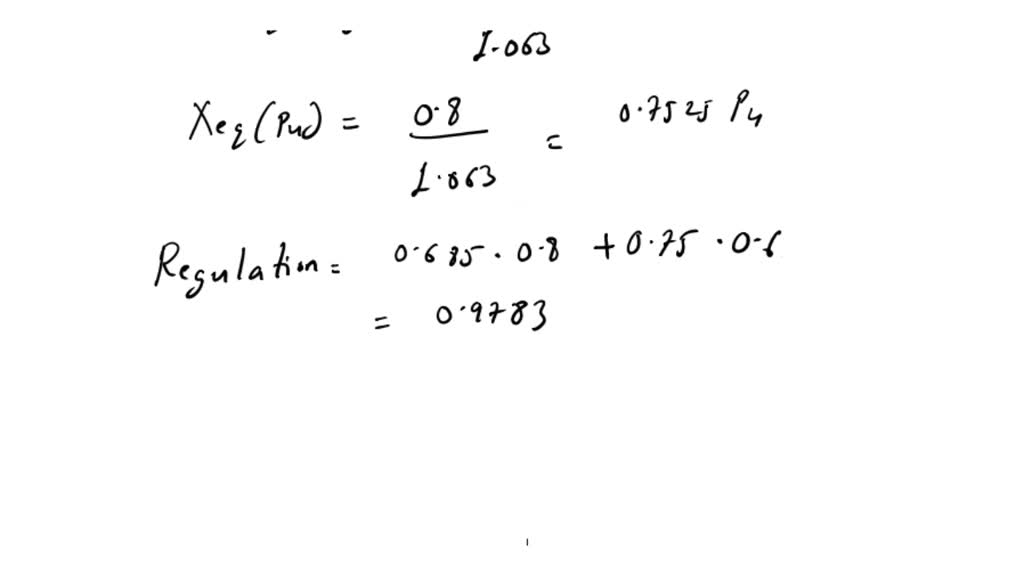 1.063
Xeq(Pu) = 0.8 / 1.063 = 0.7525 Pu
Regulation = 0.685 · 0.8 + 0.75 · 0.6
= 0.9783